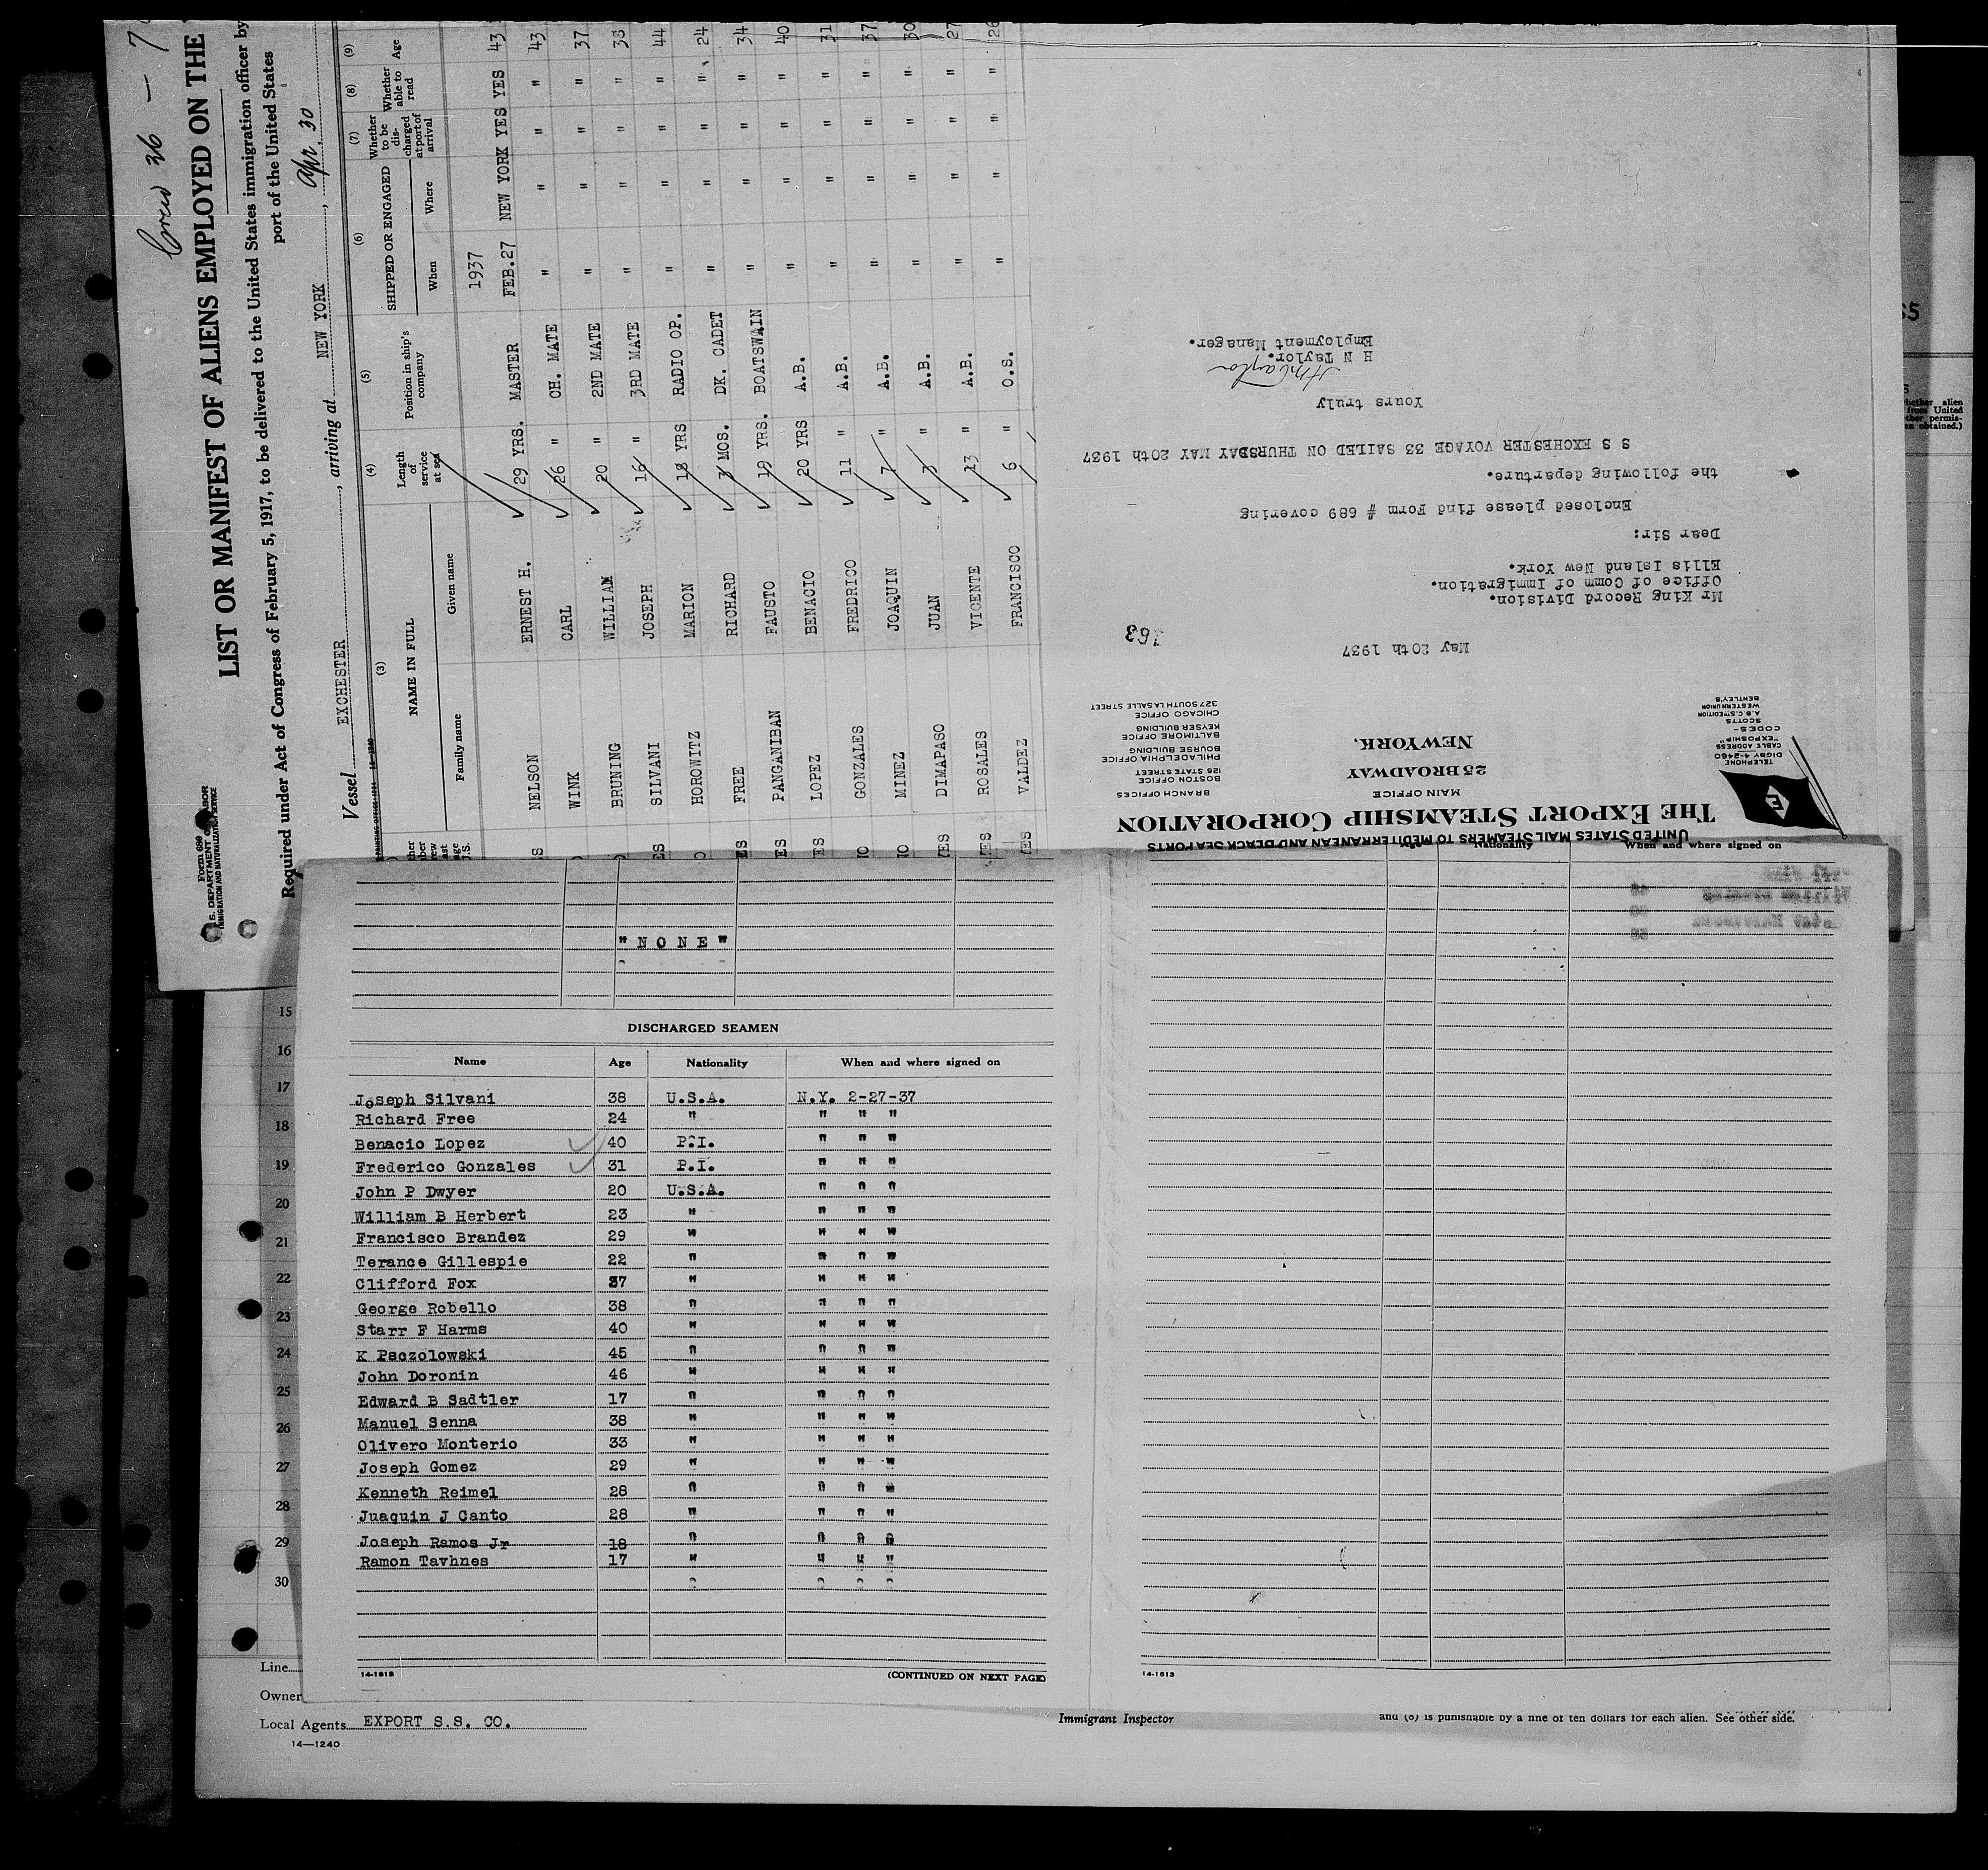 Crew 36 - 7
Form 689
U.S. DEPARTMENT OF LABOR
IMMIGRATION AND NATURALIZATION SERVICE
LIST OR MANIFEST OF ALIENS EMPLOYED ON THE
Required under Act of Congress of February 5, 1917, to be delivered to the United States immigration officer by
port of the United States
Vessel EXCHESTER, arriving at NEW YORK, Apr. 30
(3) (4) (5) (6) (7) (8) (9)
NAME IN FULL
Family name Given name
Length of service at sea
Position in ship's company
SHIPPED OR ENGAGED
When Where
Whether to be discharged at port of arrival
Whether able to read
Age
1937
NELSON ERNEST H. 29 YRS. MASTER FEB.27 NEW YORK YES YES 43
WINK CARL 26 " CH. MATE " " " " 43
BRUNING WILLIAM 20 " 2ND MATE " " " " 37
SILVANI JOSEPH 16 " 3RD MATE " " " " 38
HOROWITZ MARION 18 YRS RADIO OP. " " " " 44
FREE RICHARD 3 MOS. DK. CADET " " " " 24
PANGANIBAN FAUSTO 19 YRS. BOATSWAIN " " " " 34
LOPEZ BENACIO 20 YRS A.B. " " " " 40
GONZALES FREDRICO 11 " A.B. " " " " 31
MINEZ JOAQUIN 7 " A.B. " " " " 37
DIMAPASO JUAN 3 " A.B. " " " " 30
ROSALES VICENTE 13 " A.B. " " " " 27
VALDEZ FRANCISCO 6 " O.S. " " " " 26
UNITED STATES MAIL STEAMERS TO MEDITERRANEAN AND BLACK SEA PORTS
THE EXPORT STEAMSHIP CORPORATION
MAIN OFFICE
25 BROADWAY
NEW YORK.
TELEPHONE
DIGBY 4-2460
CABLE ADDRESS
"EXPOSHIP"
CODES-
SCOTTS
A.B.C. 5TH EDITION
WESTERN UNION
BENTLEY'S
BRANCH OFFICES
BOSTON OFFICE
126 STATE STREET
PHILADELPHIA OFFICE
BOURSE BUILDING
BALTIMORE OFFICE
KEYSER BUILDING
CHICAGO OFFICE
327 SOUTH LA SALLE STREET
E
May 20th 1937
763
Mr King Record Division.
Office of Comm of Immigration.
Ellis Island New York.
Dear Sir:
Enclosed please find Form # 689 covering
the following departure.
S S EXCHESTER VOYAGE 33 SAILED ON THURSDAY MAY 20th 1937
Yours truly
H N Taylor
H N Taylor.
Employment Manager.
"NONE"
DISCHARGED SEAMEN
Name Age Nationality When and where signed on
Joseph Silvani 38 U.S.A. N.Y. 2-27-37
Richard Free 24 " " " "
Benacio Lopez 40 P.I. " " "
Frederico Gonzales 31 P.I. " " "
John P Dwyer 20 U.S.A. " " "
William B Herbert 23 " " " "
Francisco Brandez 29 " " " "
Terance Gillespie 22 " " " "
Clifford Fox 37 " " " "
George Robello 38 " " " "
Starr F Harms 40 " " " "
K Paczolowski 45 " " " "
John Doronin 46 " " " "
Edward B Sadtler 17 " " " "
Manuel Senna 38 " " " "
Olivero Monterio 33 " " " "
Joseph Gomez 29 " " " "
Kenneth Reimel 28 " " " "
Juaquin J Canto 28 " " " "
Joseph Ramos Jr 18 " " " "
Ramon Tavhnes 17 " " " "
14-1613
(CONTINUED ON NEXT PAGE)
Nationality When and where signed on
14-1613
15
16
17
18
19
20
21
22
23
24
25
26
27
28
29
30
Line
Owner
Local Agents EXPORT S.S. CO.
14—1240
Immigrant Inspector
and (8) is punishable by a fine of ten dollars for each alien. See other side.